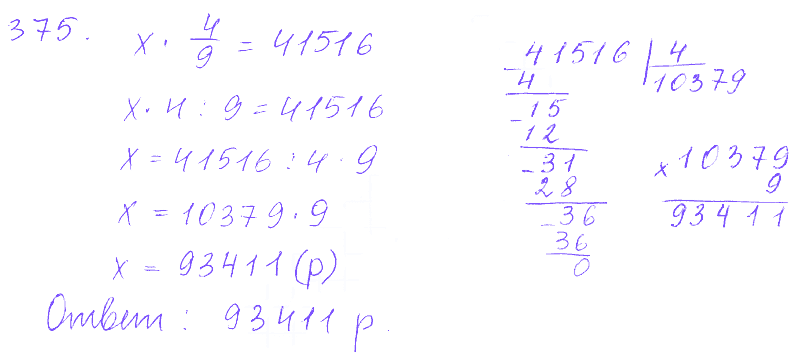 375. x · 4/9 = 41516
x · 4 : 9 = 41516
x = 41516 : 4 · 9
x = 10379 · 9
x = 93411 (р)
Ответ : 93411 р.
- 41516 | 4
4 10379
- 15
12
- 31
28
- 36
36
0
x 10379
9
93411